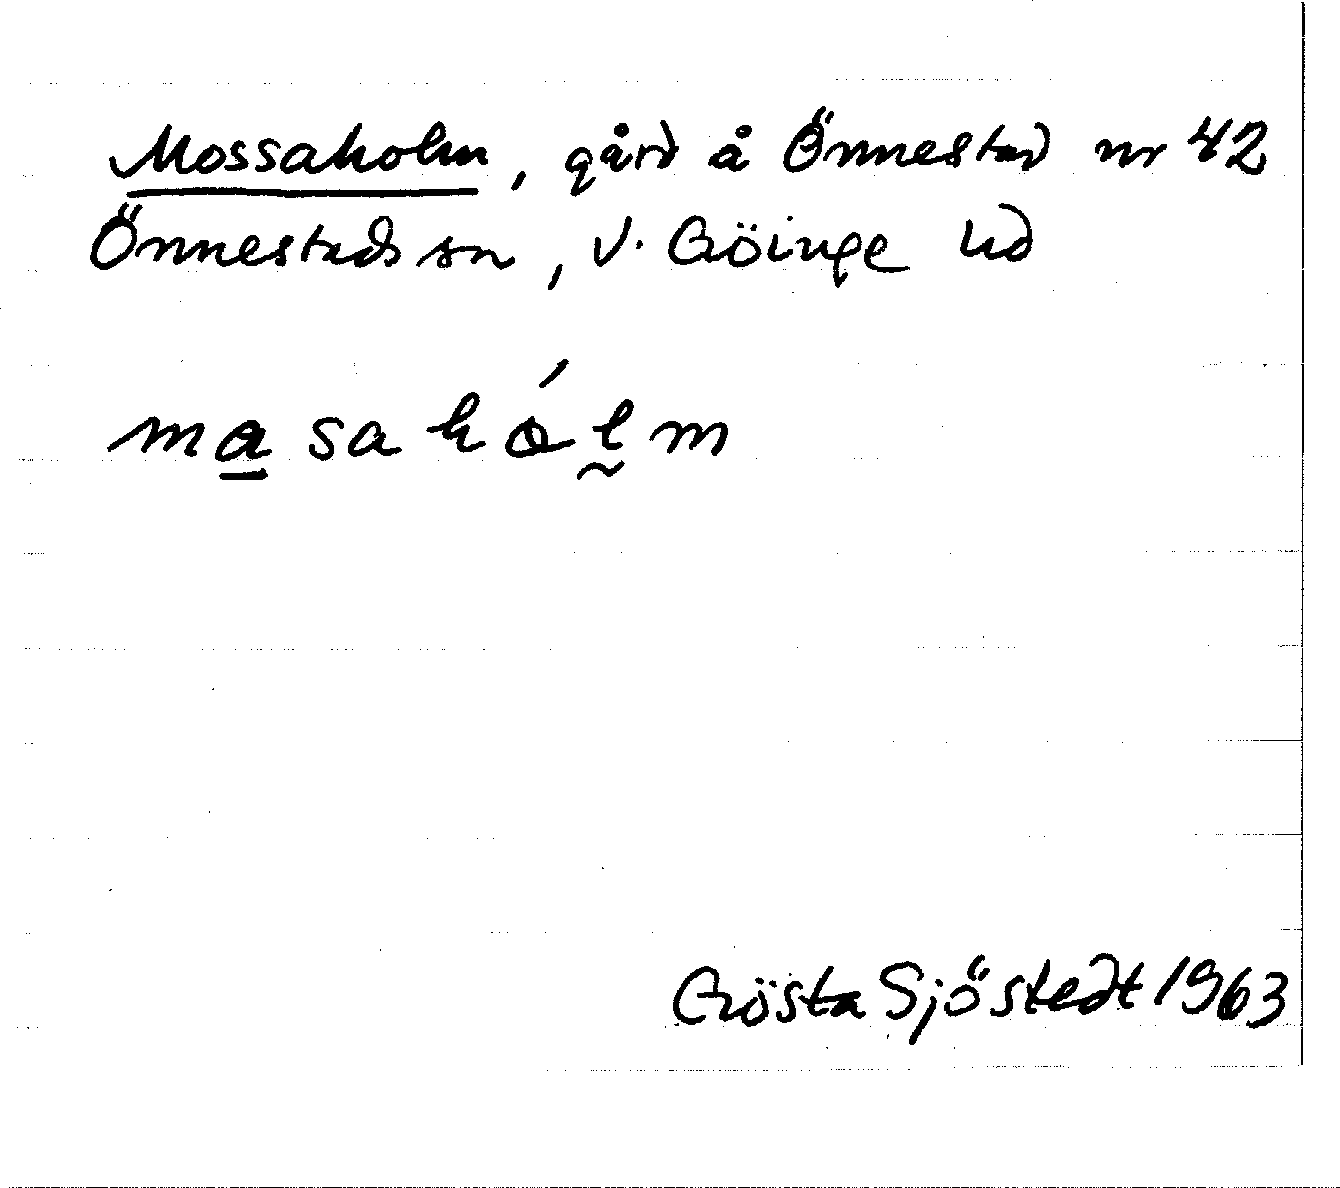 Mossaholm, gård å Önnestad nr 42
Önnestads sn, V. Göinge hd
masahólm
Gösta Sjöstedt 1963